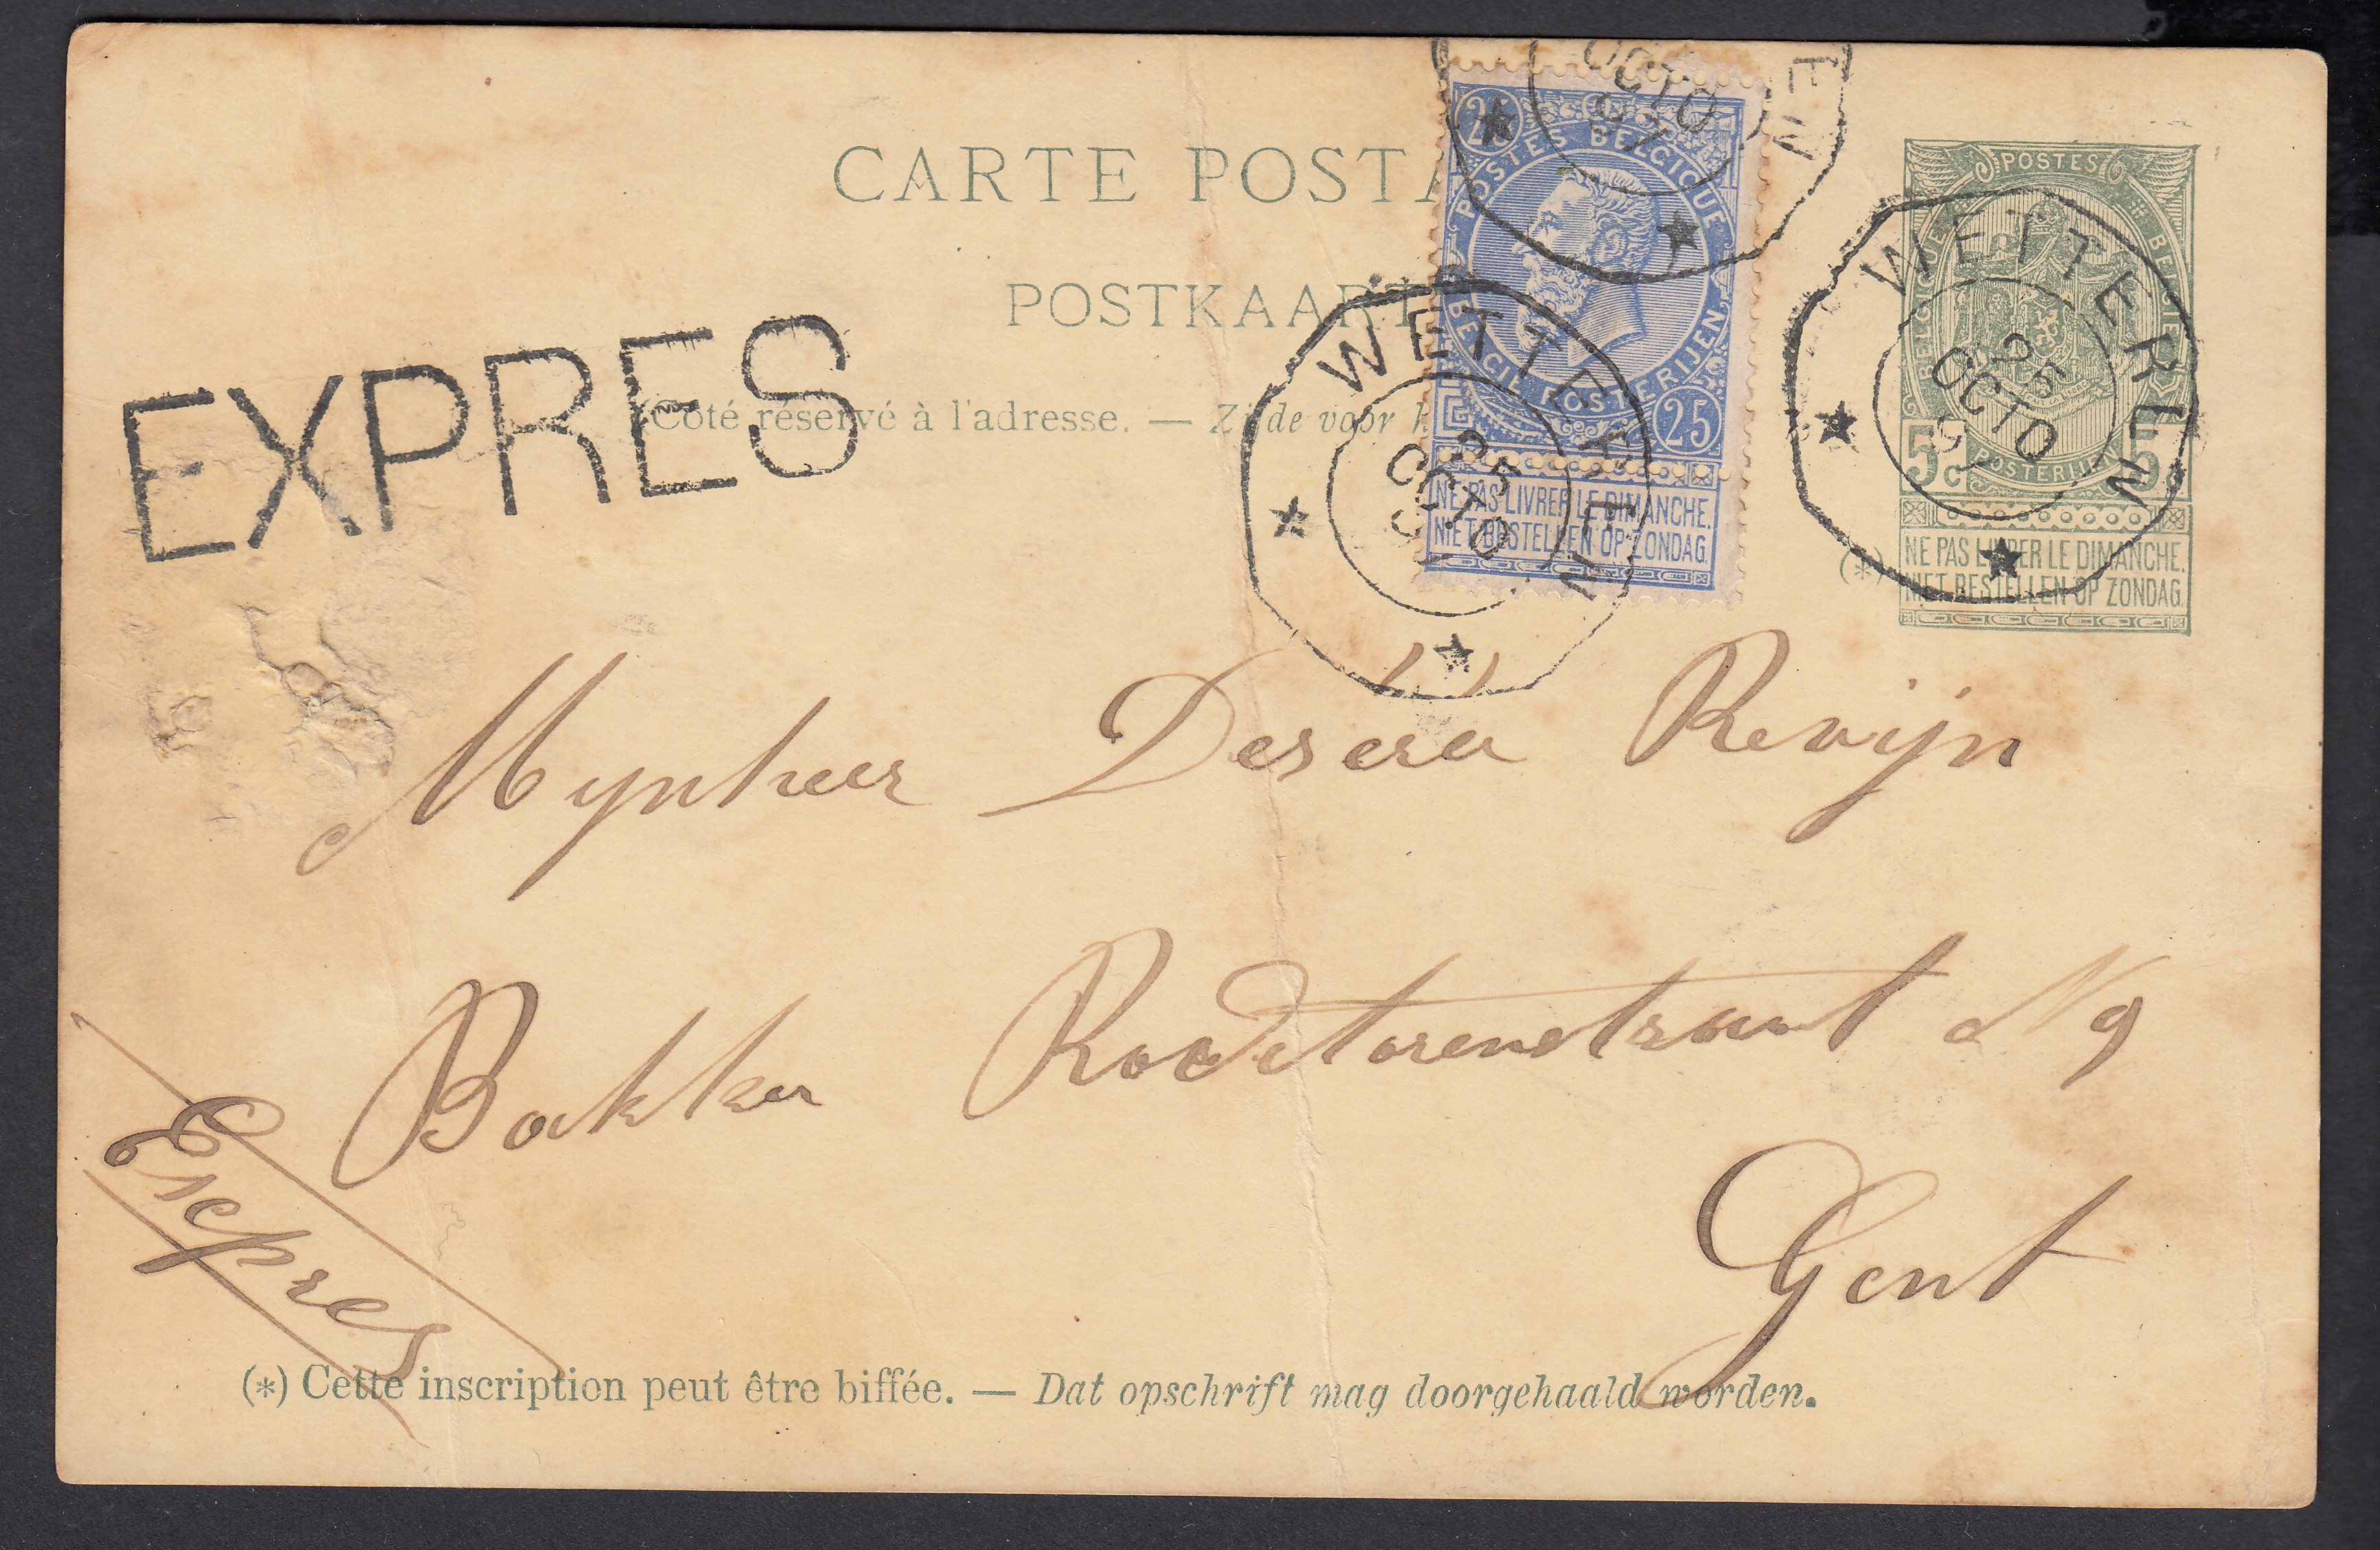 CARTE POSTA
POSTKAART
Côté réservé à l'adresse. — Zijde voor h
EXPRES
OCTO
97
EN
25
POSTES BELGIQUE
BELGIË POSTERIJEN
25
NE PAS LIVRER LE DIMANCHE.
NIET BESTELLEN OP ZONDAG.
WETTEREN
25
OCTO
POSTES
BELGIQUE BELGIE
POSTERIJEN
5c 5c
(*)
NE PAS LIVRER LE DIMANCHE.
NIET BESTELLEN OP ZONDAG.
WETTEREN
25
OCTO
97
Mynheer Revijn
Bakker Roodetorenstraat N 9
Gent
Expres
(*) Cette inscription peut être biffée. — Dat opschrift mag doorgehaald worden.